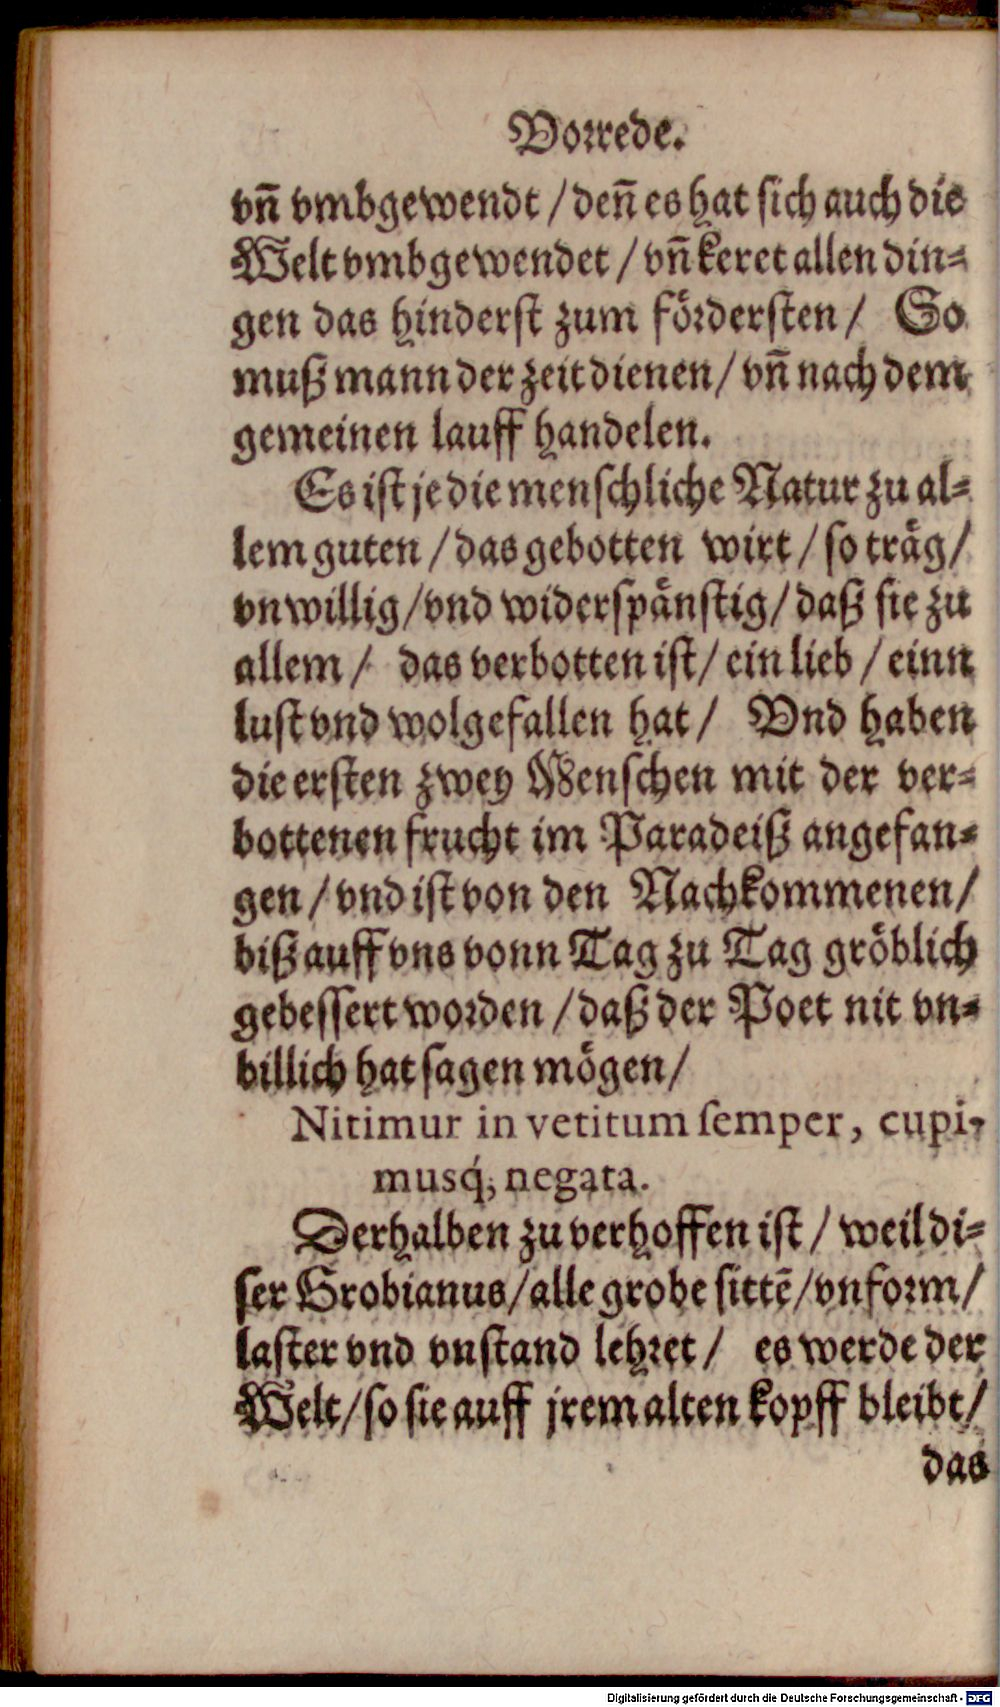 Vorrede.
vn̄ vmbgewendt / den̄ es hat sich auch die
Welt vmbgewendet / vn̄ keret allen din⸗
gen das hinderst zum fördersten / So
muß mann der zeit dienen / vn̄ nach dem
gemeinen lauff handelen.
Es ist je die menschliche Natur zu al⸗
lem guten / das gebotten wirt / so träg /
vnwillig / vnd widerspänstig / daß sie zu
allem / das verbotten ist / ein lieb / einn
lust vnd wolgefallen hat / Vnd haben
die ersten zwey Menschen mit der ver⸗
bottenen frucht im Paradeiß angefan⸗
gen / vnd ist von den Nachkommenen /
biß auff vns vonn Tag zu Tag gröblich
gebessert worden / daß der Poet nit vn⸗
billich hat sagen mögen /
Nitimur in vetitum semper, cupi-
musq́; negata.
Derhalben zu verhoffen ist / weil di⸗
ser Grobianus / alle grobe sittē / vnform /
laster vnd vnstand lehret / es werde der
Welt / so sie auff jrem alten kopff bleibt /
das
Digitalisierung gefördert durch die Deutsche Forschungsgemeinschaft - DFG